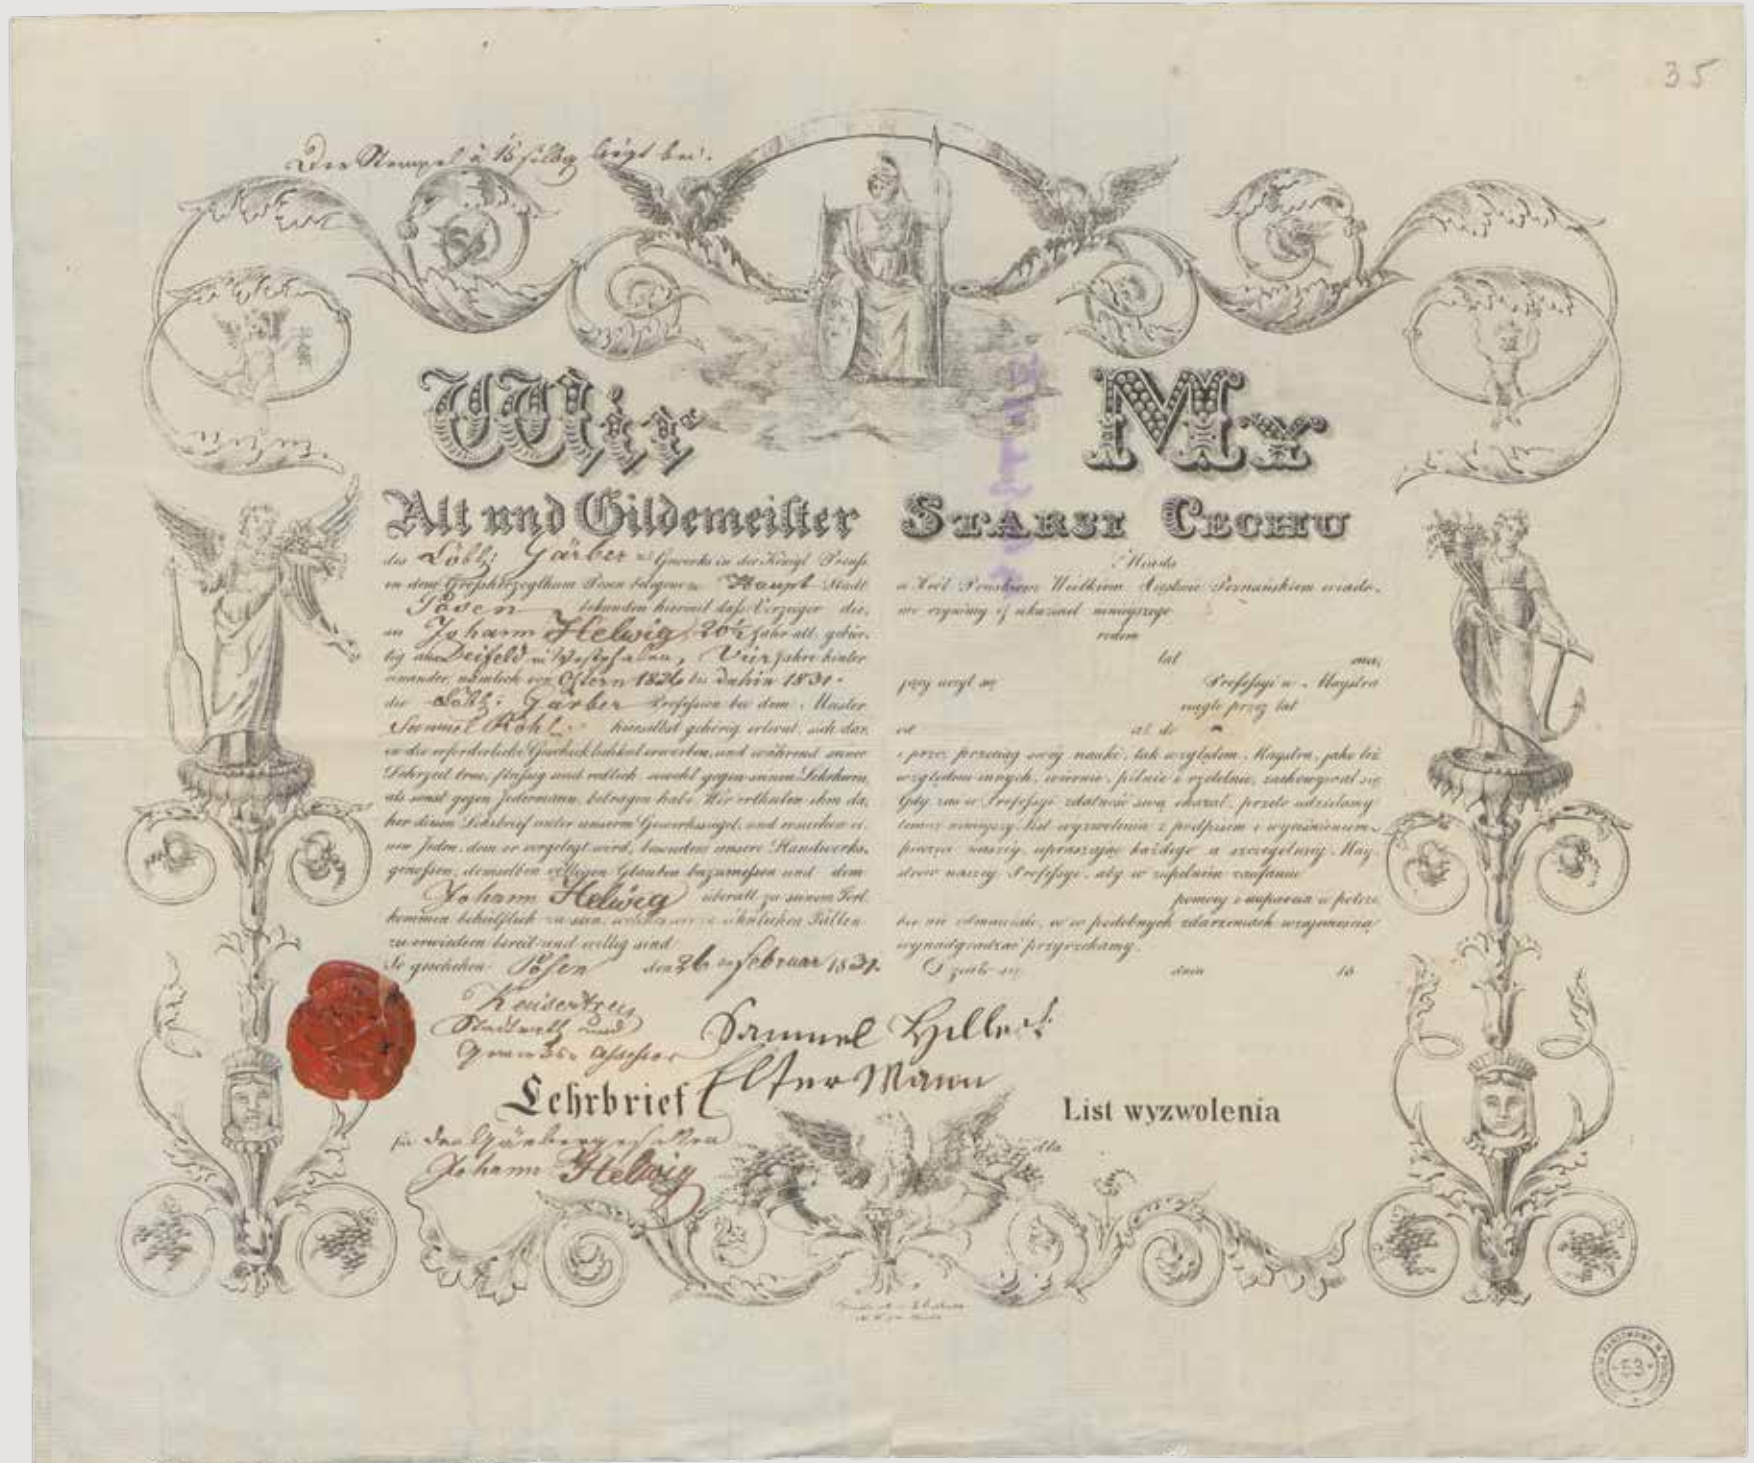 35
Der Stempel à 15 silbg liegt bei.
Wir
Alt und Gildemeister
des Löbl: Gärber Gewerks in der Königl Preuß.
in dem Großherzogthum Posen belegenen Haupt Stadt
Posen bekunden hiermit daß Vorzeiger die-
ses Johann Helwig, 20½ Jahr alt, gebür-
tig aus Deifeld in Westphalen, Vier Jahre hinter
einander, nämlich von Ostern 1826 bis dahin 1831.
die Löbl: Gärber Profession bei dem Meister
Samuel Röhl hieselbst gehörig erlernt, sich dar-
in die erforderliche Geschicklichkeit erworben, und während seiner
Lehrzeit treu, fleißig und redlich sowohl gegen seinen Lehrherrn,
als sonst gegen Jedermann, betragen habe. Wir ertheilen ihm da-
her diesen Lehrbrief unter unserm Gewerkssiegel, und ersuchen ei-
nen Jeden, dem er vorgelegt wird, besonders unsere Handwerks-
genossen, demselben völligen Glauben beizumeßen und dem
Johann Helwig überall zu seinem Fort-
kommen behülflich zu sein, ähnlichen Fällen
zu erwiedern bereit und willig sind.
So geschehen Posen den 26 Februar 1831.
My
Starsi Cechu
Miasta
w Król Pruskiem Wielkiem Xięstwie Poznańskiem wiado-
mo czynimy iż okaziciel niniejszego
rodem
lat
jący uczył się Professyi u Magstra
ciągle przez lat
od aż do
i przez przeciąg swej nauki, tak względem Magstra, jako też
względem innych, wiernie, pilnie i rzetelnie, zachowywał się
Gdy zaś w Professyi zdatność swą okazał, przeto udzielamy
temuż niniejszy list wyzwolenia z podpisem i wyciśnieniem
pieczęci naszéj, upraszając każdego a szczególniéj Mag-
strów naszéj Professyi, aby w zupełnem zaufaniu
pomocy i wsparcia w potrze-
bie nie odmawiali, co w podobnych zdarzeniach wzajemnością
wynadgradzać przyrzekamy.
Działo się dnia 18
Stadtrath und
Gewerks Assessor
Samuel Hilbert
Elter Mann
Lehrbrief
für den Gärbergesellen
Johann Helwig
List wyzwolenia
dla
53